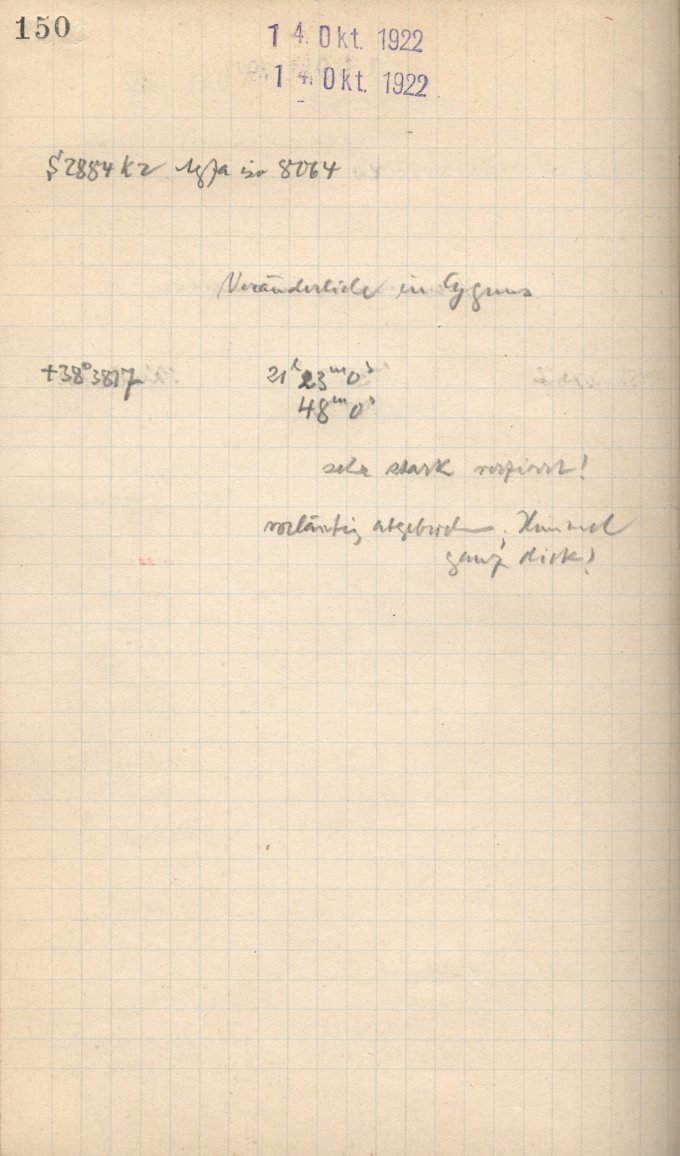 150
14. Okt. 1922
14. Okt. 1922
S 2884 K2 Agfa iso 8064
Veränderliche in Cygnus
+38°3817 21ʰ23ᵐ0ˢ
48ᵐ0ˢ
sehr stark verziert!
vorläufig abgebrochen, Himmel
ganz dick!